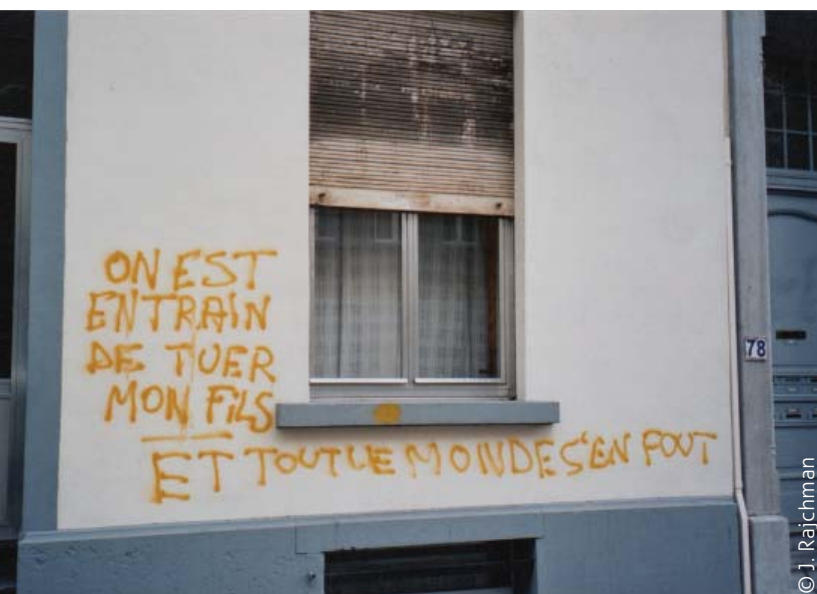 ON EST
ENTRAIN
DE TUER
MON FiLS
ET TOUT LE MONDE S'EN FOUT
78
© J. Rajchman